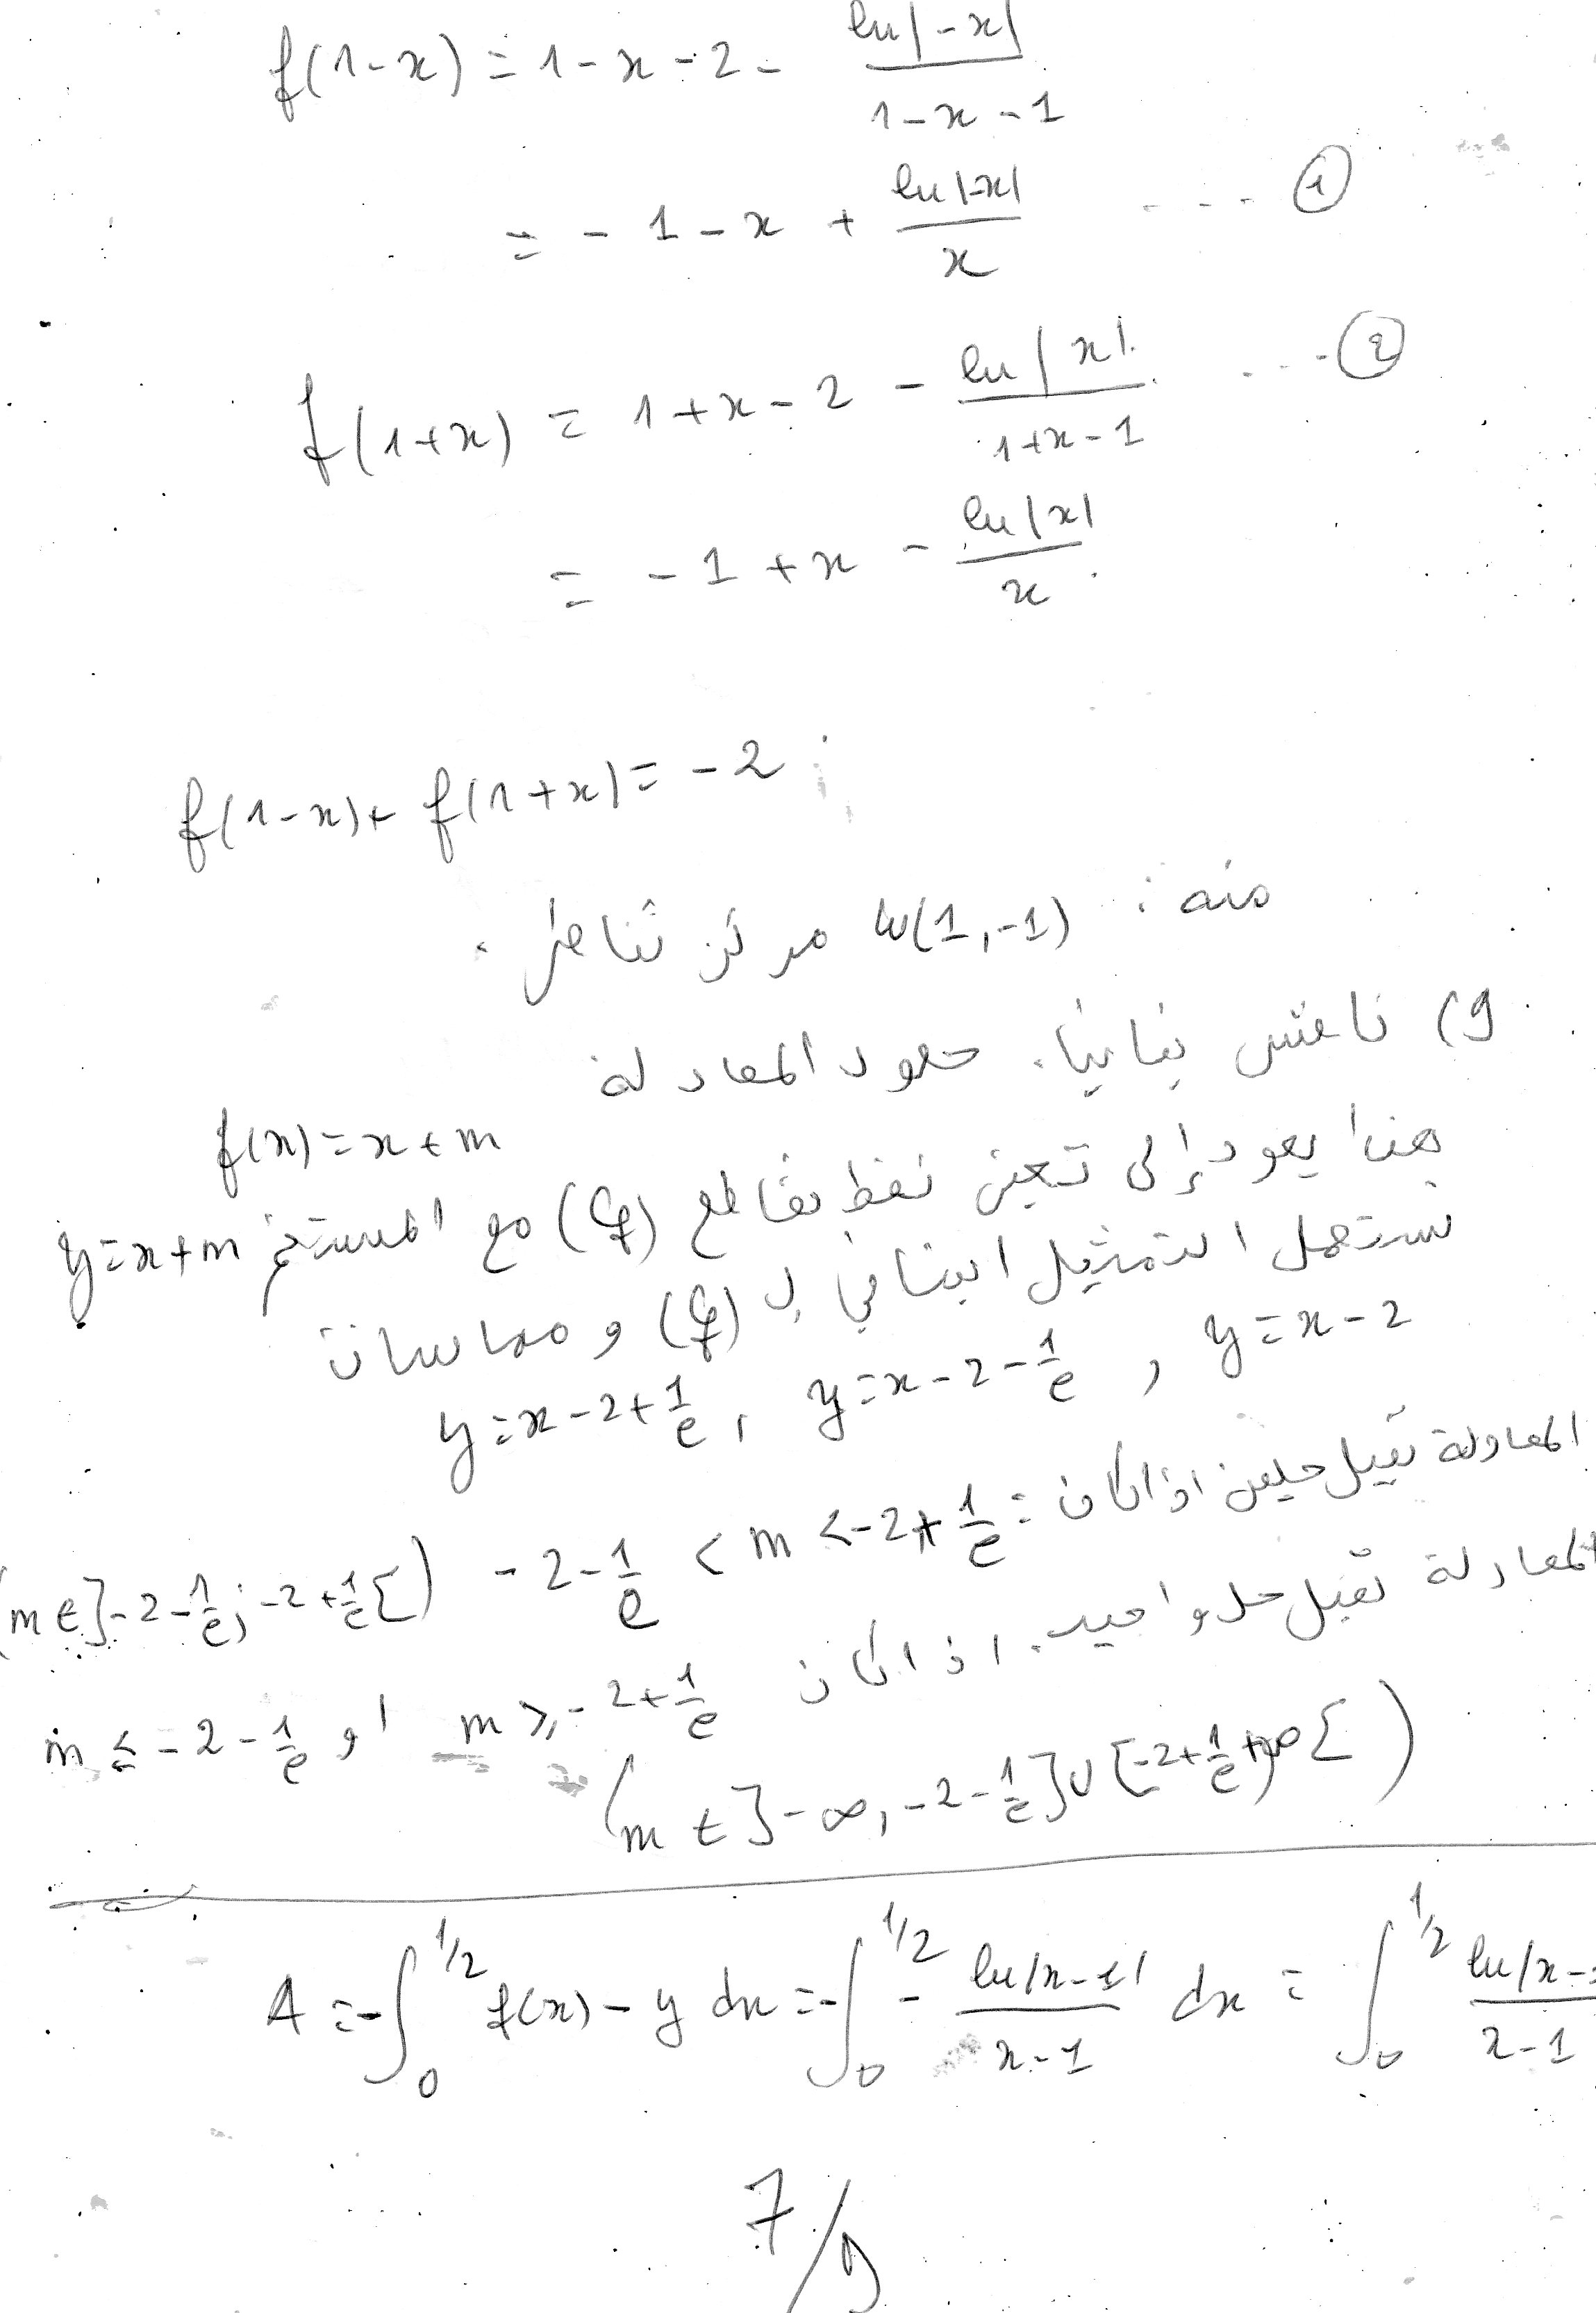 f(1-x) = 1-x-2- ln|-x| / 1-x-1
= -1-x + ln|-x| / x .... ①
f(1+x) = 1+x-2 - ln|x| / 1+x-1 .... ②
= -1+x - ln|x| / x
f(1-x)+f(1+x) = -2
منه : w(1,-1) مركز تناظر.
9) ناقش بيانيا. حلود المعادلة
f(x)=x+m
هذا يعود إلى تعين نقط تقاطع (Cf) مع المستقيم y=x+m
نستعمل التمثيل البياني لـ (Cf) و مماسات
y=x-2 , y=x-2-1/e , y=x-2+1/e
المعادلة تقبل حلين اذا كان : -2-1/e < m < -2+1/e (m∈]-2-1/e ; -2+1/e[)
المعادلة تقبل حلا واحيد. اذا كان m ≥ -2+1/e او m ≤ -2-1/e
(m∈]-∞, -2-1/e]∪[-2+1/e, +∞[)
A = -∫₀^{1/2} f(x)-y dx = -∫₀^{1/2} - ln|x-1| / x-1 dx = ∫₀^{1/2} ln|x- / x-1
7/9